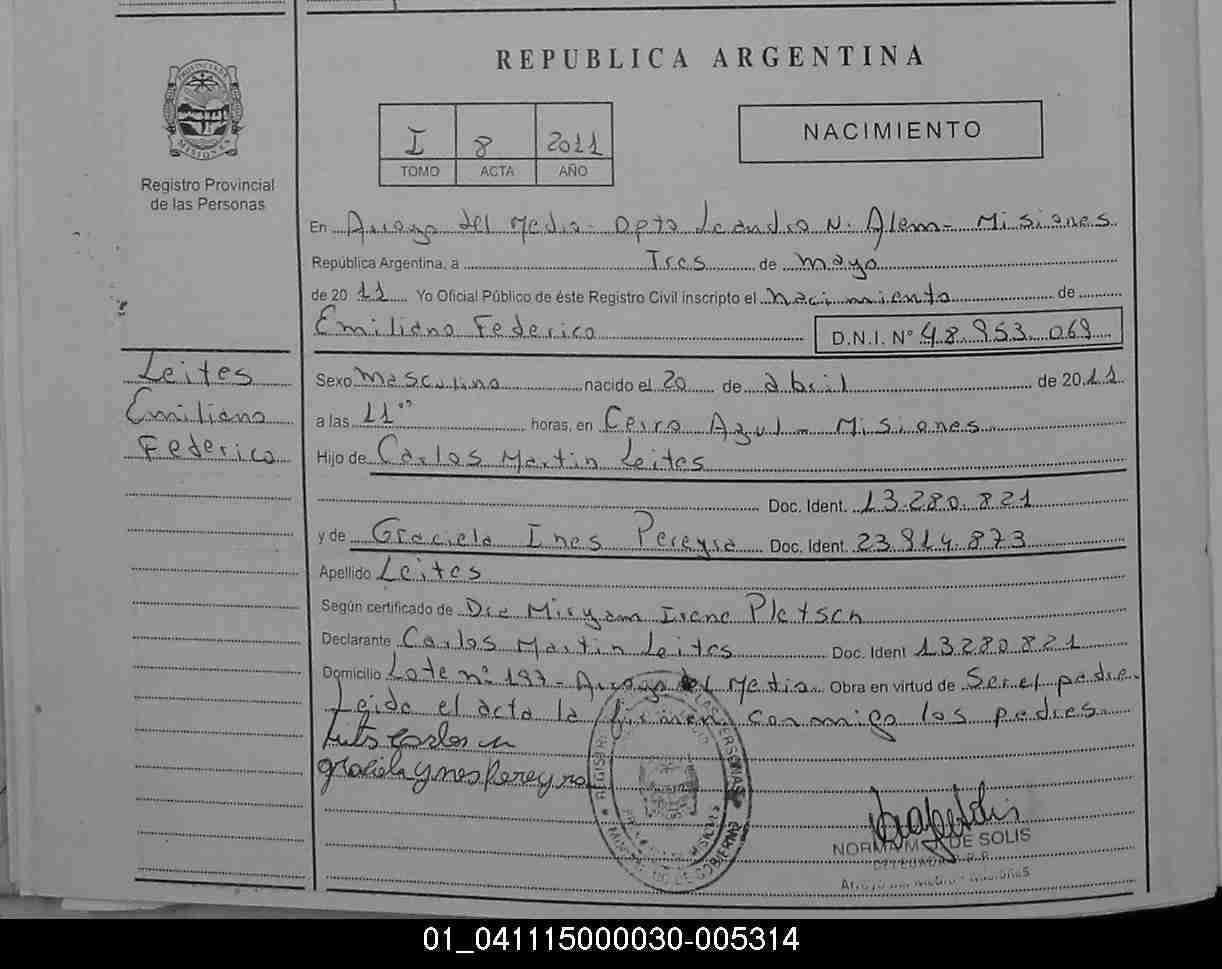 REPUBLICA ARGENTINA
PROVINCIA DE
MISIONES
Registro Provincial
de las Personas
I 8 2011
TOMO ACTA AÑO
NACIMIENTO
En Arroyo del Medio - Dpto Leandro N. Alem - Misiones
República Argentina, a Tres de mayo
de 2011 Yo Oficial Público de éste Registro Civil inscripto el nacimiento de
Emiliano Federico D.N.I. N° 48.953.069
Leites
Emiliano
Federico
Sexo Masculino nacido el 20 de abril de 2011
a las 11°° horas, en Cerro Azul - Misiones
Hijo de Carlos Martin Leites
Doc. Ident. 13.280.821
y de Graciela Ines Pereyra Doc. Ident. 23.914.873
Apellido Leites
Según certificado de Dra Miryam Irene Pletsch
Declarante Carlos Martin Leites Doc. Ident 13280821
Domicilio Lote n° 197 - Arroyo del Medio Obra en virtud de Ser el padre
Leida el acta la firman conmigo los padres
Leites Carlos M
graciela ynes Pereyra
REGISTRO DE LAS PERSONAS
MINISTERIO DE GOBIERNO
NORMA M. DE SOLIS
Arroyo del Medio - Misiones
01_041115000030-005314